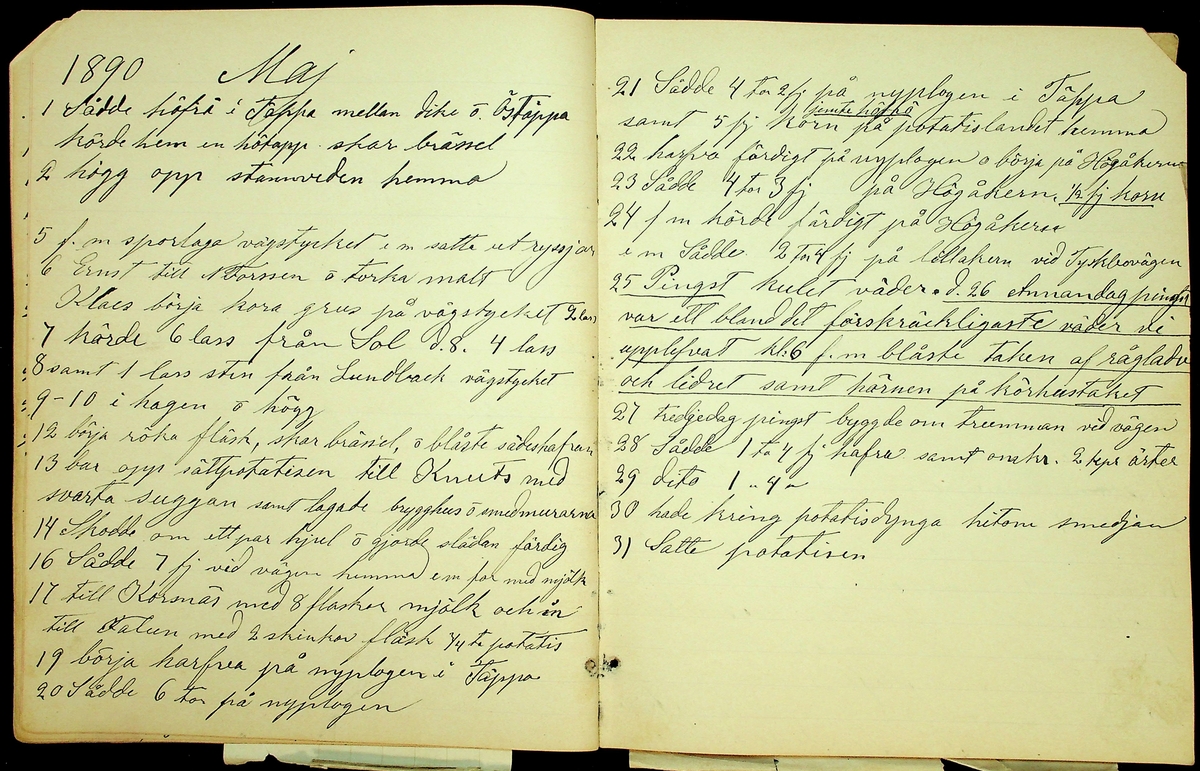 1890 Maj
1 Sådde höfrö i Täppa mellan dike o. Östäppa
körde hem en hötapp skar brässel
2 högg opp stamveden hemma
5 f. m sportaga vägstycket e m satte ut ryssjor
6 Ernst till Forssen o torka malt
Klaes börja köra grus på vägstycket 2 lass
7 körde 6 lass från Sol d. 8. 4 lass
8 samt 1 lass sten från Lundback vägstycket
9-10 i hagen o högg
12 börja röka fläsk, skar brässel, o blåste sädeshafren
13 bar opp sättpotatisen till Knuts med
svarta suggan samt lagade brygghus o smedmurarna
14 Skodde om ett par hjul o gjorde slädan färdig
16 Sådde 7 fj vid vägen hemma em for med mjölk
17 till Korsnäs med 8 flaskor mjölk och in
till Falun med 2 skinkor fläsk 1/4 ta potatis
19 börja harfva på nyplogen i Täppa
20 Sådde 6 tor på nyplogen
21 Sådde 4 tor 2 fj på nyplogen i Täppa
jemte höfrö
samt 5 fj korn på potatislandet hemma
22 harfva färdigt på nyplogen o börja på Högåkern
23 Sådde 4 tor 3 fj på Högåkern, 1/2 fj korn
24 f m körde färdigt på Högåkern
e m Sådde 2 tor 4 fj på vid Tyskbovägen
25 Pingst kulet väder. d. 26 Annandag pingst
var ett bland det förskräckligaste väder vi
upplefvat kl: 6 f. m blåste taken af rågladu
och lidret samt hörnen på körhustaket
27 tredjedag pingst byggde om trumman vid vägen
28 Sådde 1 ta 4 fj hafra samt onskr. 2 kpr ärter
29 dito 1 " 4 "
30 hade kring potatisdynga hitom smedjan
31 Satte potatisen